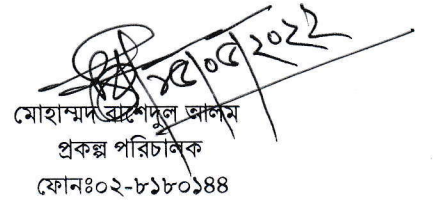 ১৫/০৫/২০২২
মোহাম্মদ রাশেদুল আলম
প্রকল্প পরিচালক
ফোনঃ০২-৮১৮০১৪৪